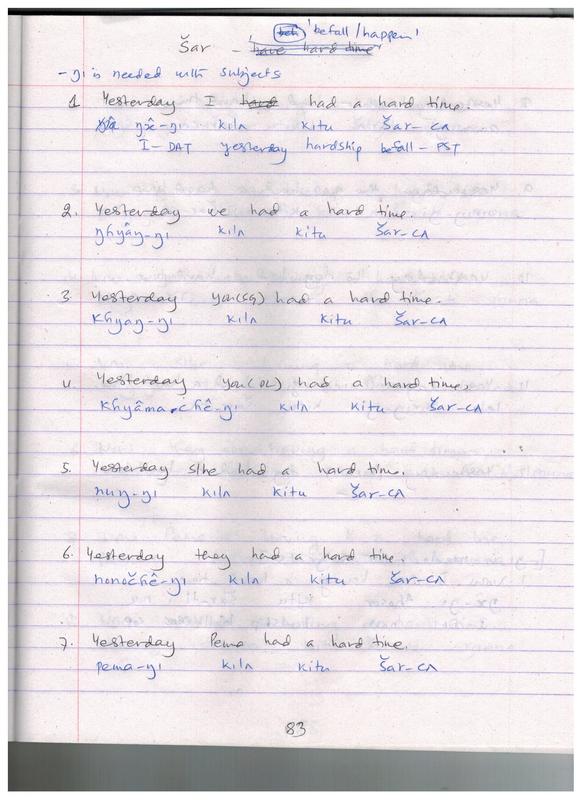 'befall/happen'
Šar - have hard time
-ŋɪ is needed with subjects
1 Yesterday I had had a hard time.
ŋx̂-ŋɪ kilʌ kitu Šar-cʌ
I-DAT yesterday hardship befall-PST
2. Yesterday we had a hard time.
ŋhyâŋ-ŋɪ kilʌ kitu Šar-cʌ
3. Yesterday you(SG) had a hard time.
Khyaŋ-ŋɪ kilʌ kitu Šar-cʌ
4. Yesterday you(PL) had a hard time.
Khyâma chê-ŋɪ kilʌ kitu Šar-cʌ
5. Yesterday s/he had a hard time.
nuŋ-ŋɪ kilʌ kitu Šar-cʌ
6. Yesterday they had a hard time.
nonočhê-ŋɪ kilʌ kitu Šar-cʌ
7. Yesterday Pema had a hard time.
pema-ŋɪ kilʌ kitu Šar-cʌ
83